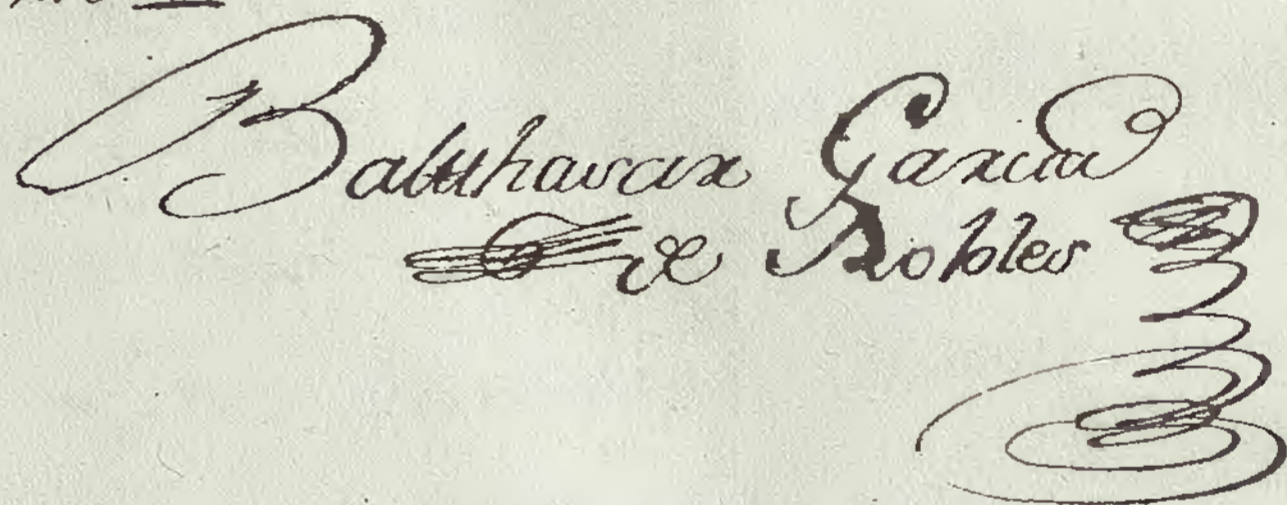 Balthasar Garcia
de Robles